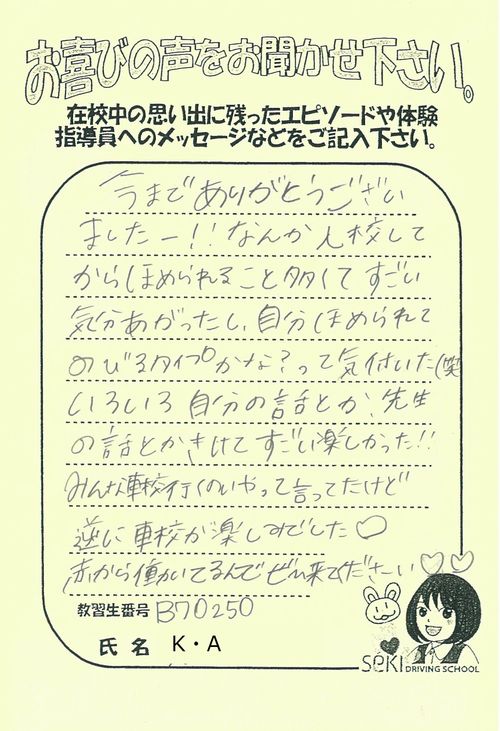 お喜びの声をお聞かせ下さい。
在校中の思い出に残ったエピソードや体験
指導員へのメッセージなどをご記入下さい。
今までありがとうござい
ましたー!! なんか入校して
からほめられること多くてすごい
気分あがったし、自分ほめられて
のびるタイプかな?って気付いた(笑
いろいろ自分の話とか、先生
の話とかきけてすごい楽しかった!!
みんな車校行くのいやって言ってたけど
逆に車校が楽しみでした♡
から働いてるんでぜひ来てくださーい♡♡
教習生番号 B70250
氏名 K・A
SEKI DRIVING SCHOOL